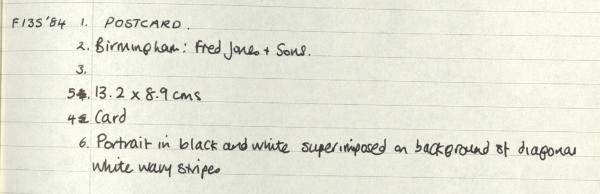 F135'84 1. POSTCARD.
2. Birmingham: Fred Jones + Sons.
3.
5. 13.2 x 8.9 cms
4. Card
6. Portrait in black and white superimposed on background of diagonal
white wavy stripes